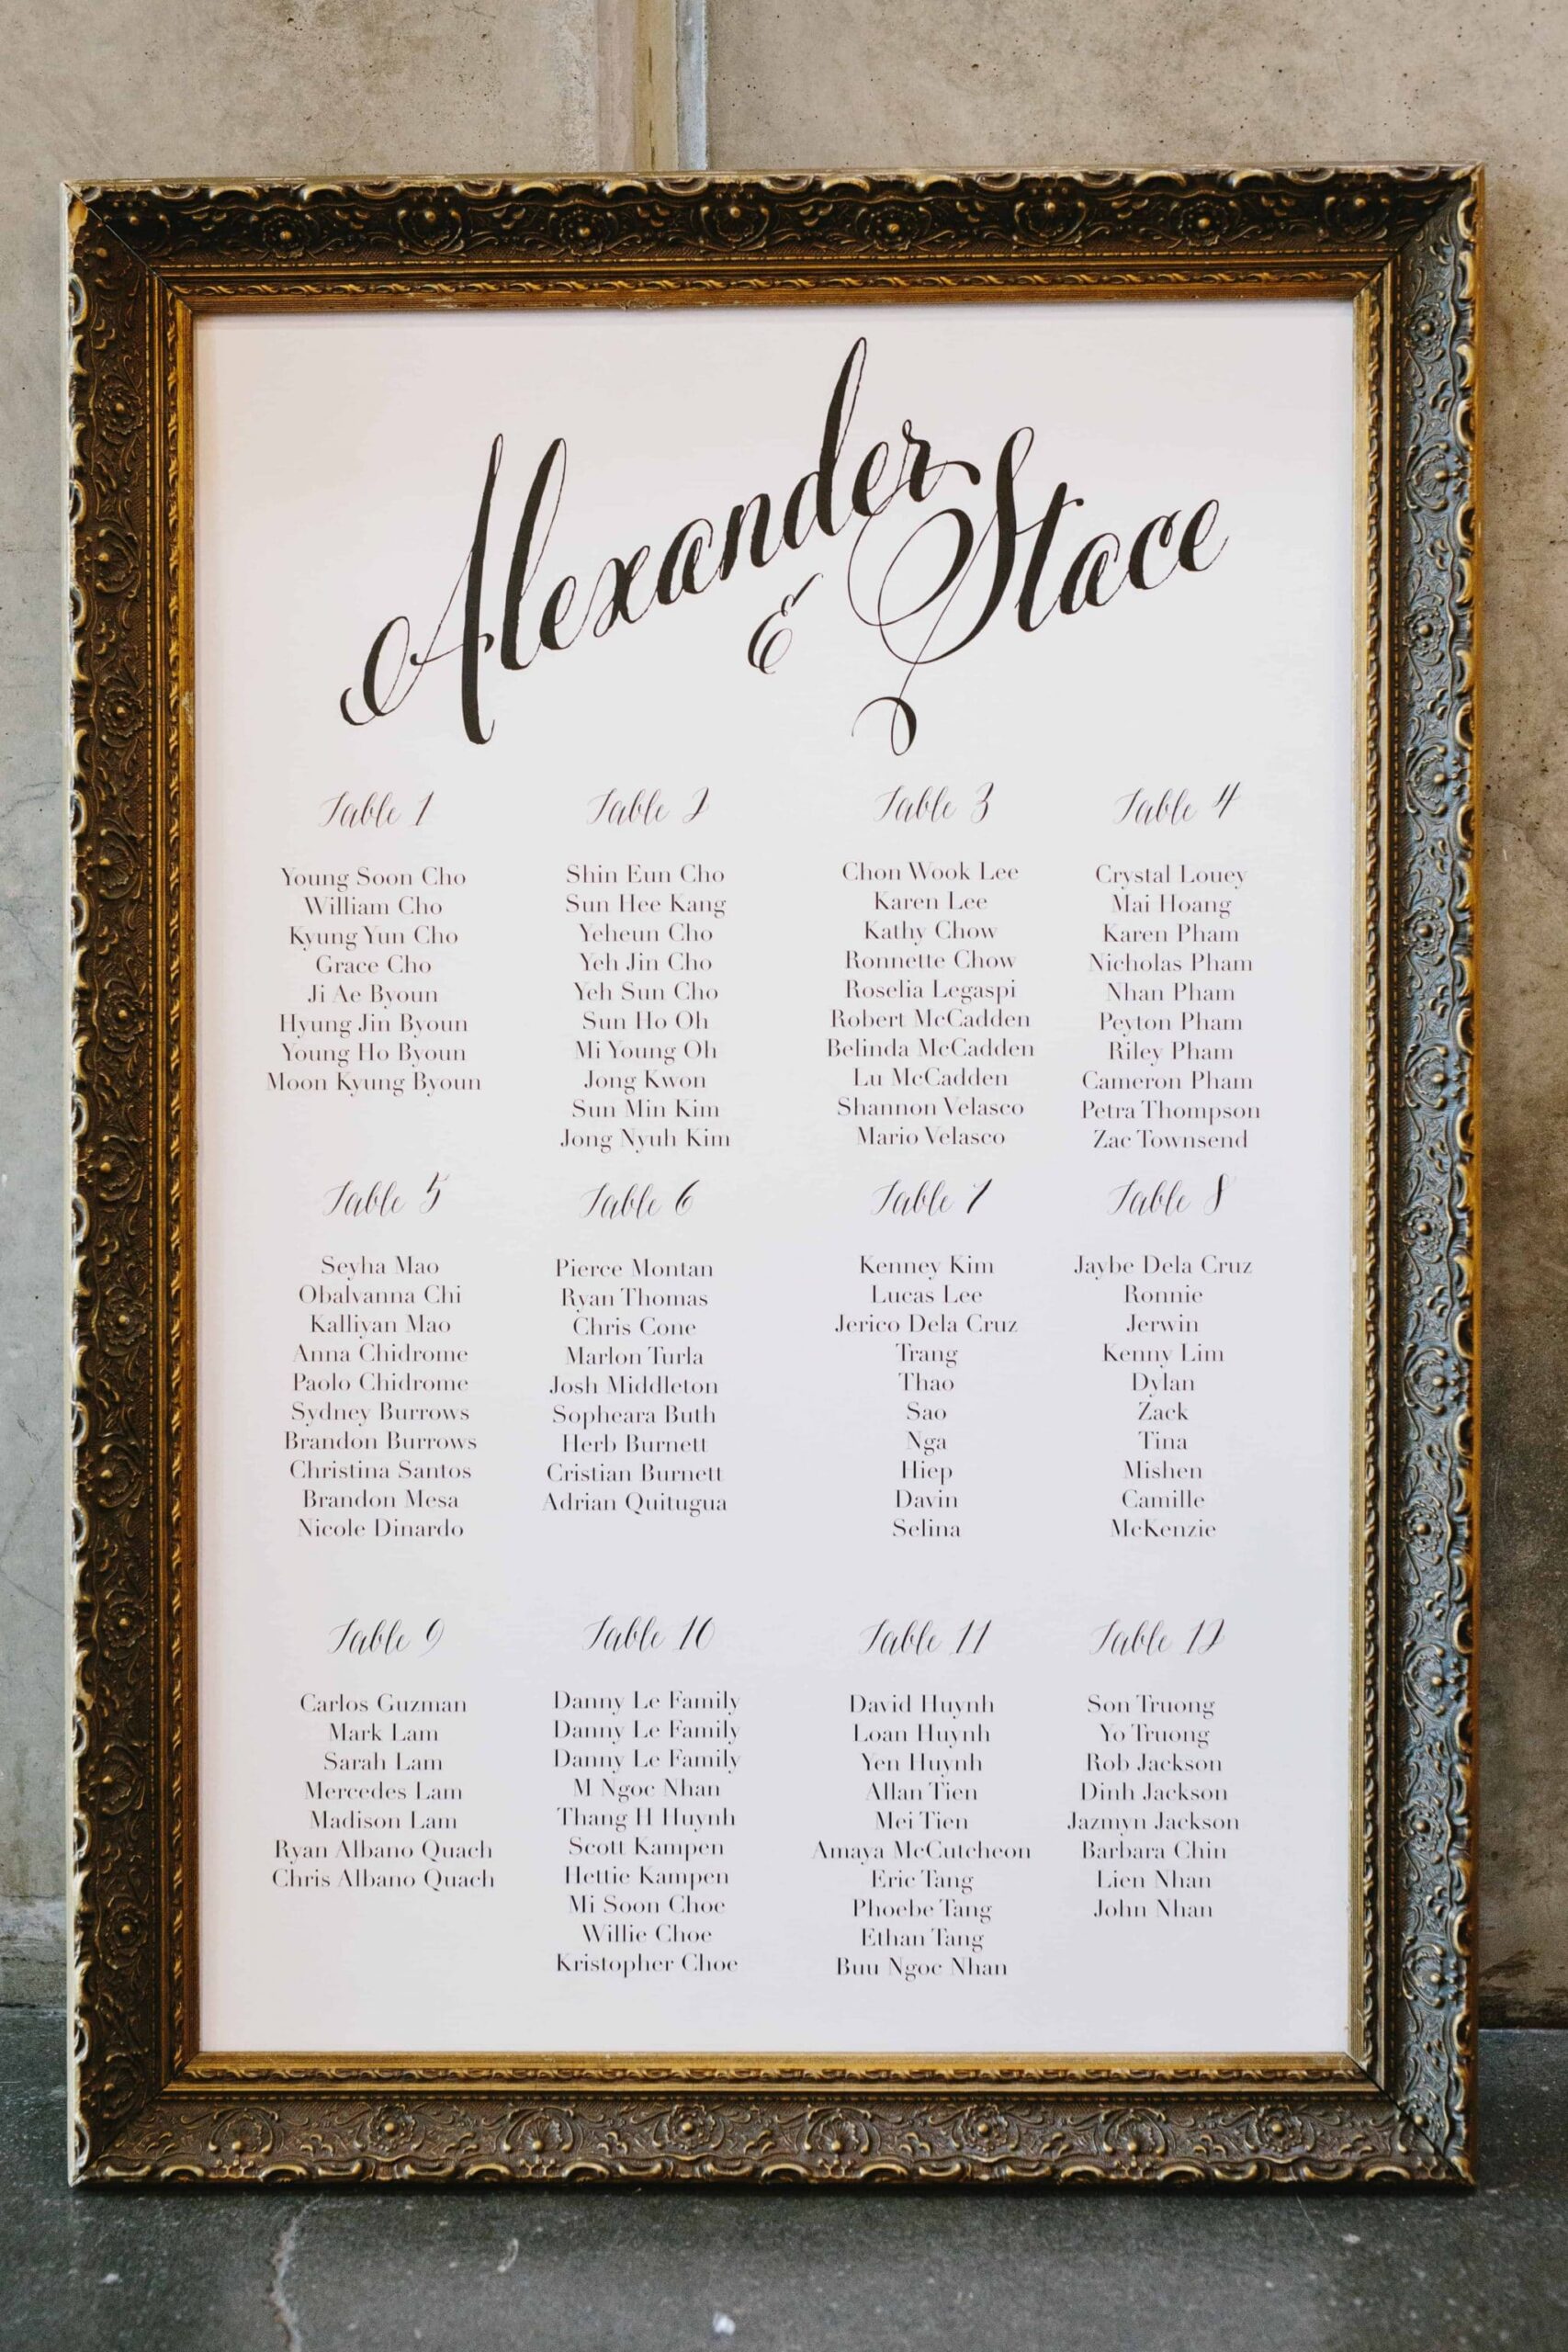 Alexander
& Stace
Table 1
Young Soon Cho
William Cho
Kyung Yun Cho
Grace Cho
Ji Ae Byoun
Hyung Jin Byoun
Young Ho Byoun
Moon Kyung Byoun
Table 2
Shin Eun Cho
Sun Hee Kang
Yeheun Cho
Yeh Jin Cho
Yeh Sun Cho
Sun Ho Oh
Mi Young Oh
Jong Kwon
Sun Min Kim
Jong Nyuh Kim
Table 3
Chon Wook Lee
Karen Lee
Kathy Chow
Ronnette Chow
Roselia Legaspi
Robert McCadden
Belinda McCadden
Lu McCadden
Shannon Velasco
Mario Velasco
Table 4
Crystal Louey
Mai Hoang
Karen Pham
Nicholas Pham
Nhan Pham
Peyton Pham
Riley Pham
Cameron Pham
Petra Thompson
Zac Townsend
Table 5
Seyha Mao
Obalvanna Chi
Kalliyan Mao
Anna Chidrome
Paolo Chidrome
Sydney Burrows
Brandon Burrows
Christina Santos
Brandon Mesa
Nicole Dinardo
Table 6
Pierce Montan
Ryan Thomas
Chris Cone
Marlon Turla
Josh Middleton
Sopheara Buth
Herb Burnett
Cristian Burnett
Adrian Quitugua
Table 7
Kenney Kim
Lucas Lee
Jerico Dela Cruz
Trang
Thao
Sao
Nga
Hiep
Davin
Selina
Table 8
Jaybe Dela Cruz
Ronnie
Jerwin
Kenny Lim
Dylan
Zack
Tina
Mishen
Camille
McKenzie
Table 9
Carlos Guzman
Mark Lam
Sarah Lam
Mercedes Lam
Madison Lam
Ryan Albano Quach
Chris Albano Quach
Table 10
Danny Le Family
Danny Le Family
Danny Le Family
M Ngoc Nhan
Thang H Huynh
Scott Kampen
Hettie Kampen
Mi Soon Choe
Willie Choe
Kristopher Choe
Table 11
David Huynh
Loan Huynh
Yen Huynh
Allan Tien
Mei Tien
Amaya McCutcheon
Eric Tang
Phoebe Tang
Ethan Tang
Buu Ngoc Nhan
Table 12
Son Truong
Yo Truong
Rob Jackson
Dinh Jackson
Jazmyn Jackson
Barbara Chin
Lien Nhan
John Nhan